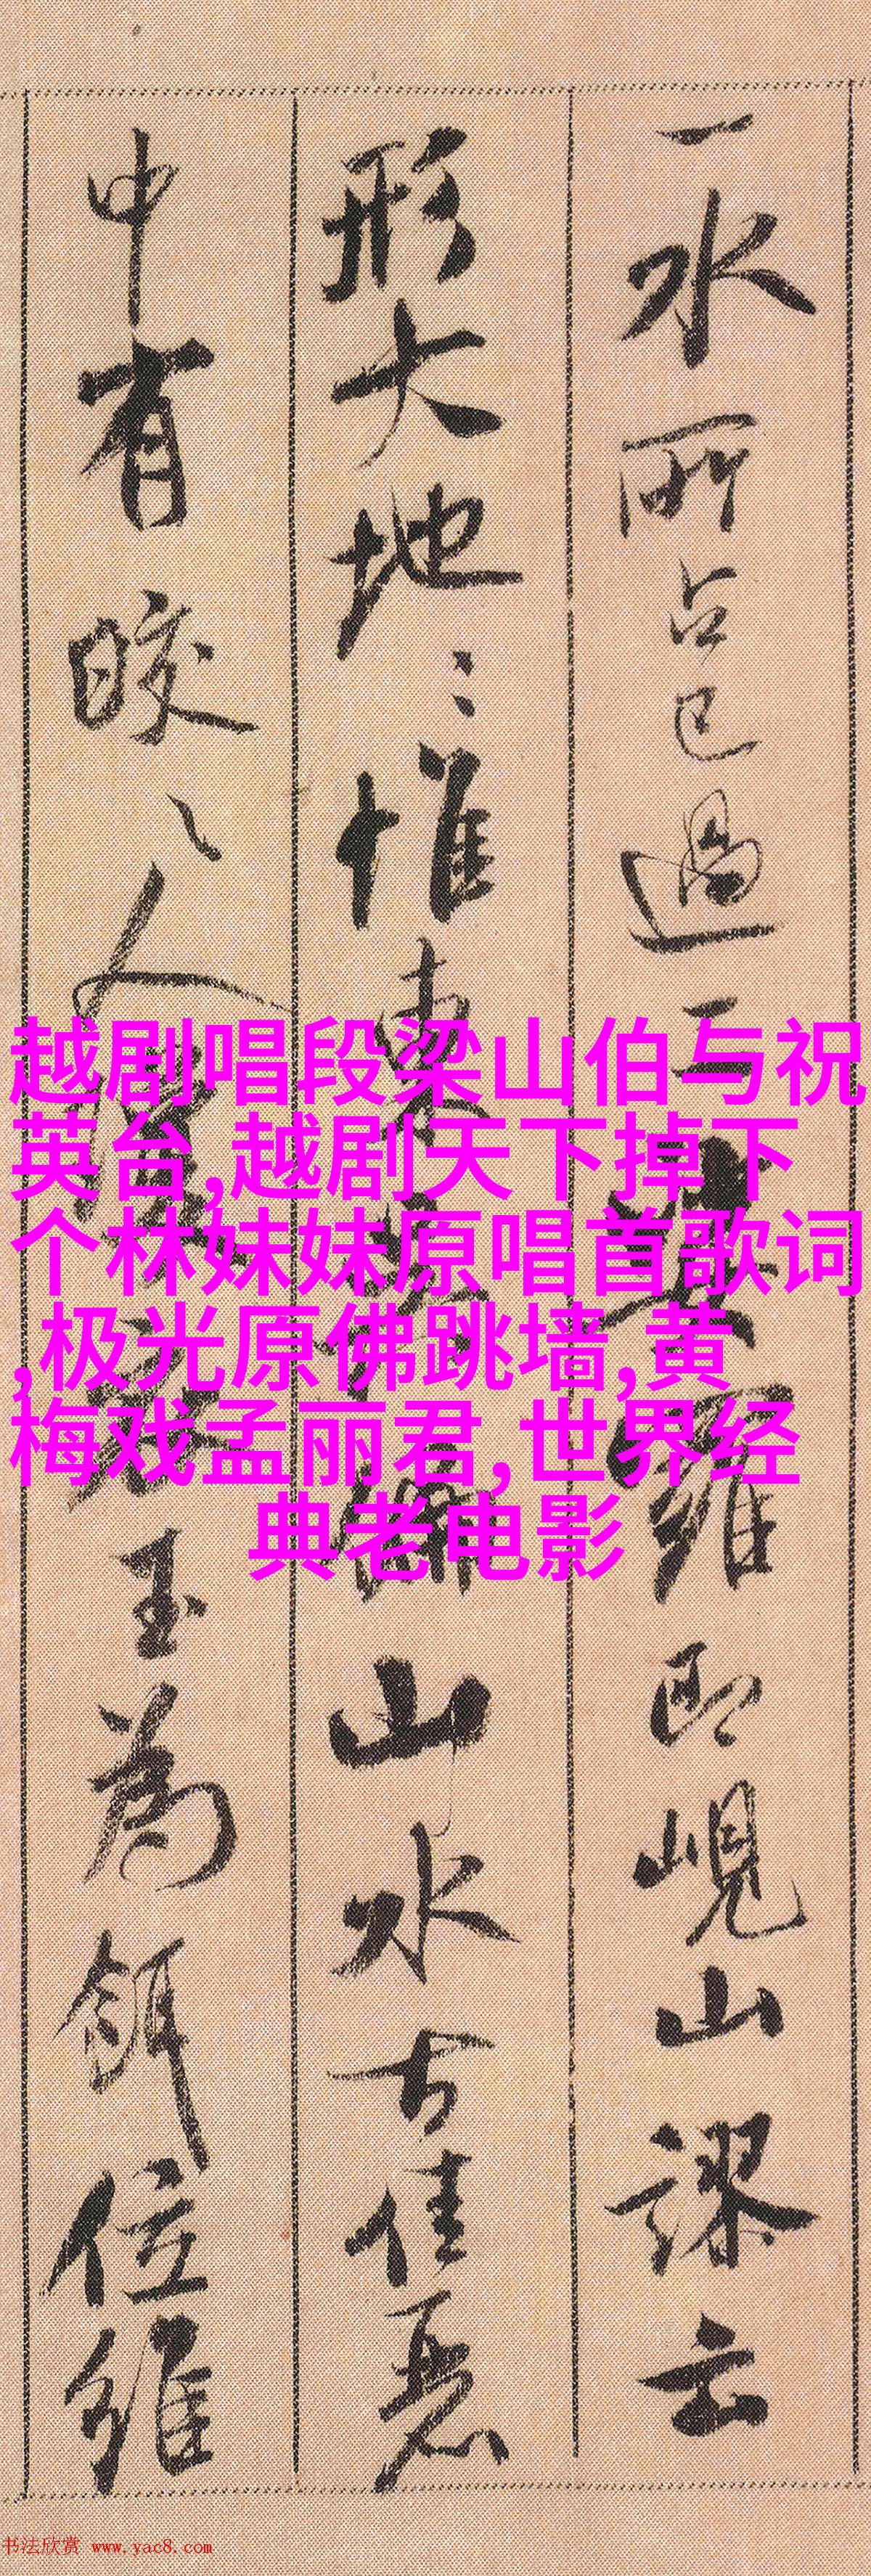 一水所占已過二娑羅即峴山謬云
形大地〻惟東吳偏山水古佳麗
中有皎〻人瓊衣玉為餌位維
越剧唱段梁山伯与祝
英台,越剧天下掉下
个林妹妹原唱首歌词
,极光原佛跳墙,黄
梅戏孟丽君,世界经
典老电影
书法欣赏 www.yac8.com